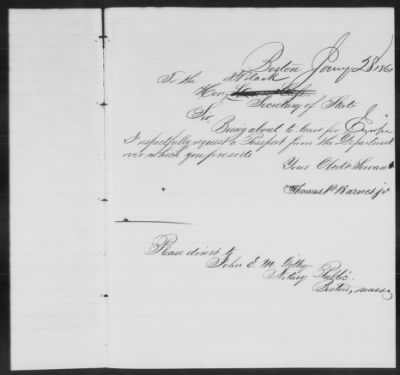 Boston Jany 28 1861
To the
J. S. Black
Hon. Lewis Cass
Secretary of State
Sir,
Being about to leave for Europe
I respectfully request a Passport from the Department
over which you preside
Your Obedt Servant
Thomas P. Barnes Jr
Please direct to
John E. M. Gilley
Notary Public.
Boston, Mass